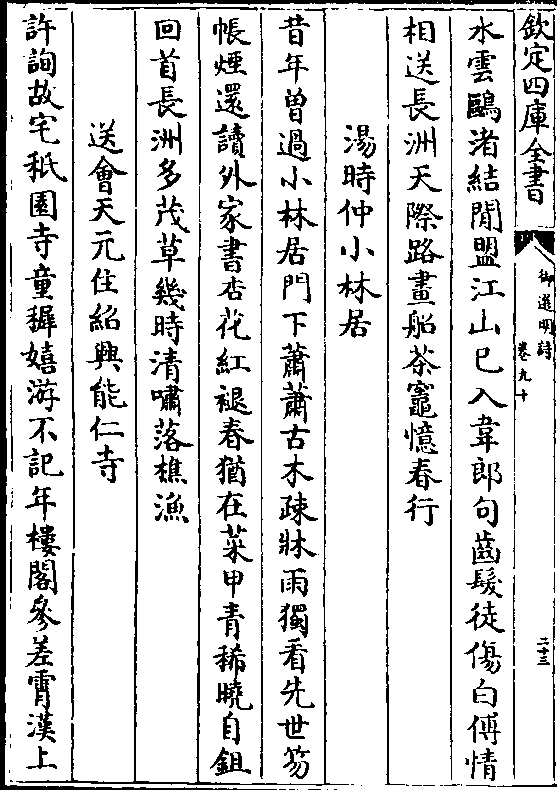 欽定四庫全書
御選明詩
卷九十
二十三
水雲鷗渚結閒盟江山已入韋郎句齒髮徒傷白傅情
相送長洲天際路畫船茶竈憶春行
湯時仲小林居
昔年曾過小林居門下蕭蕭古木疎牀雨獨看先世笏
帳煙還讀外家書杏花紅褪春猶在菜甲青稀曉自鉏
回首長洲多茂草幾時清嘯落樵漁
送會天元住紹興能仁寺
許詢故宅秖園寺童穉嬉游不記年樓閣參差霄漢上